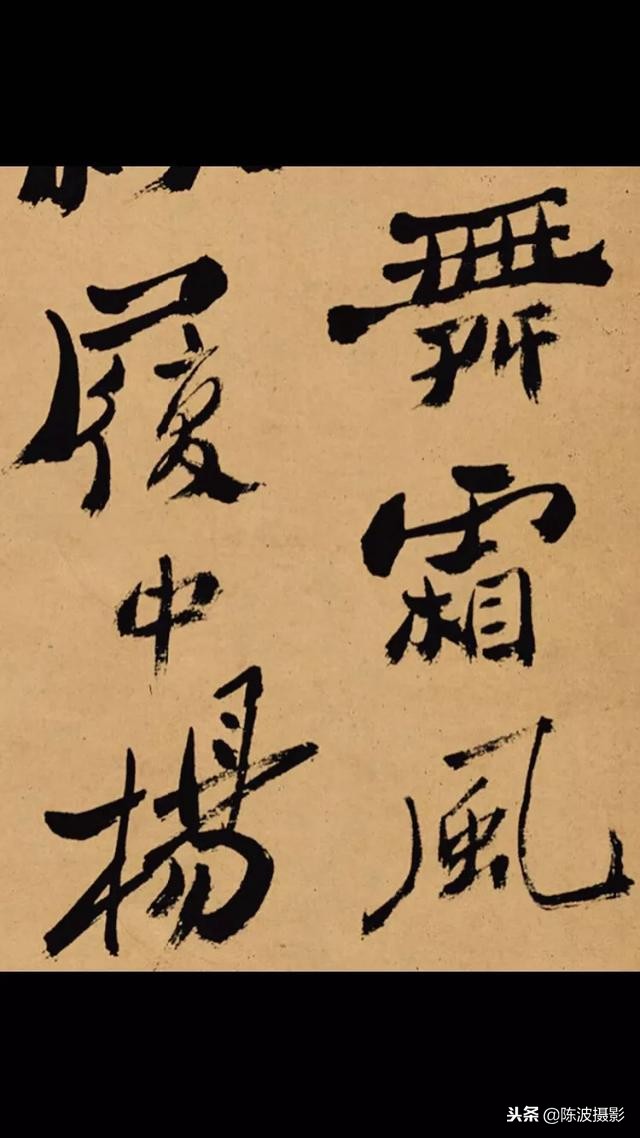 舞霜風
履中楊
头条 @陈波摄影